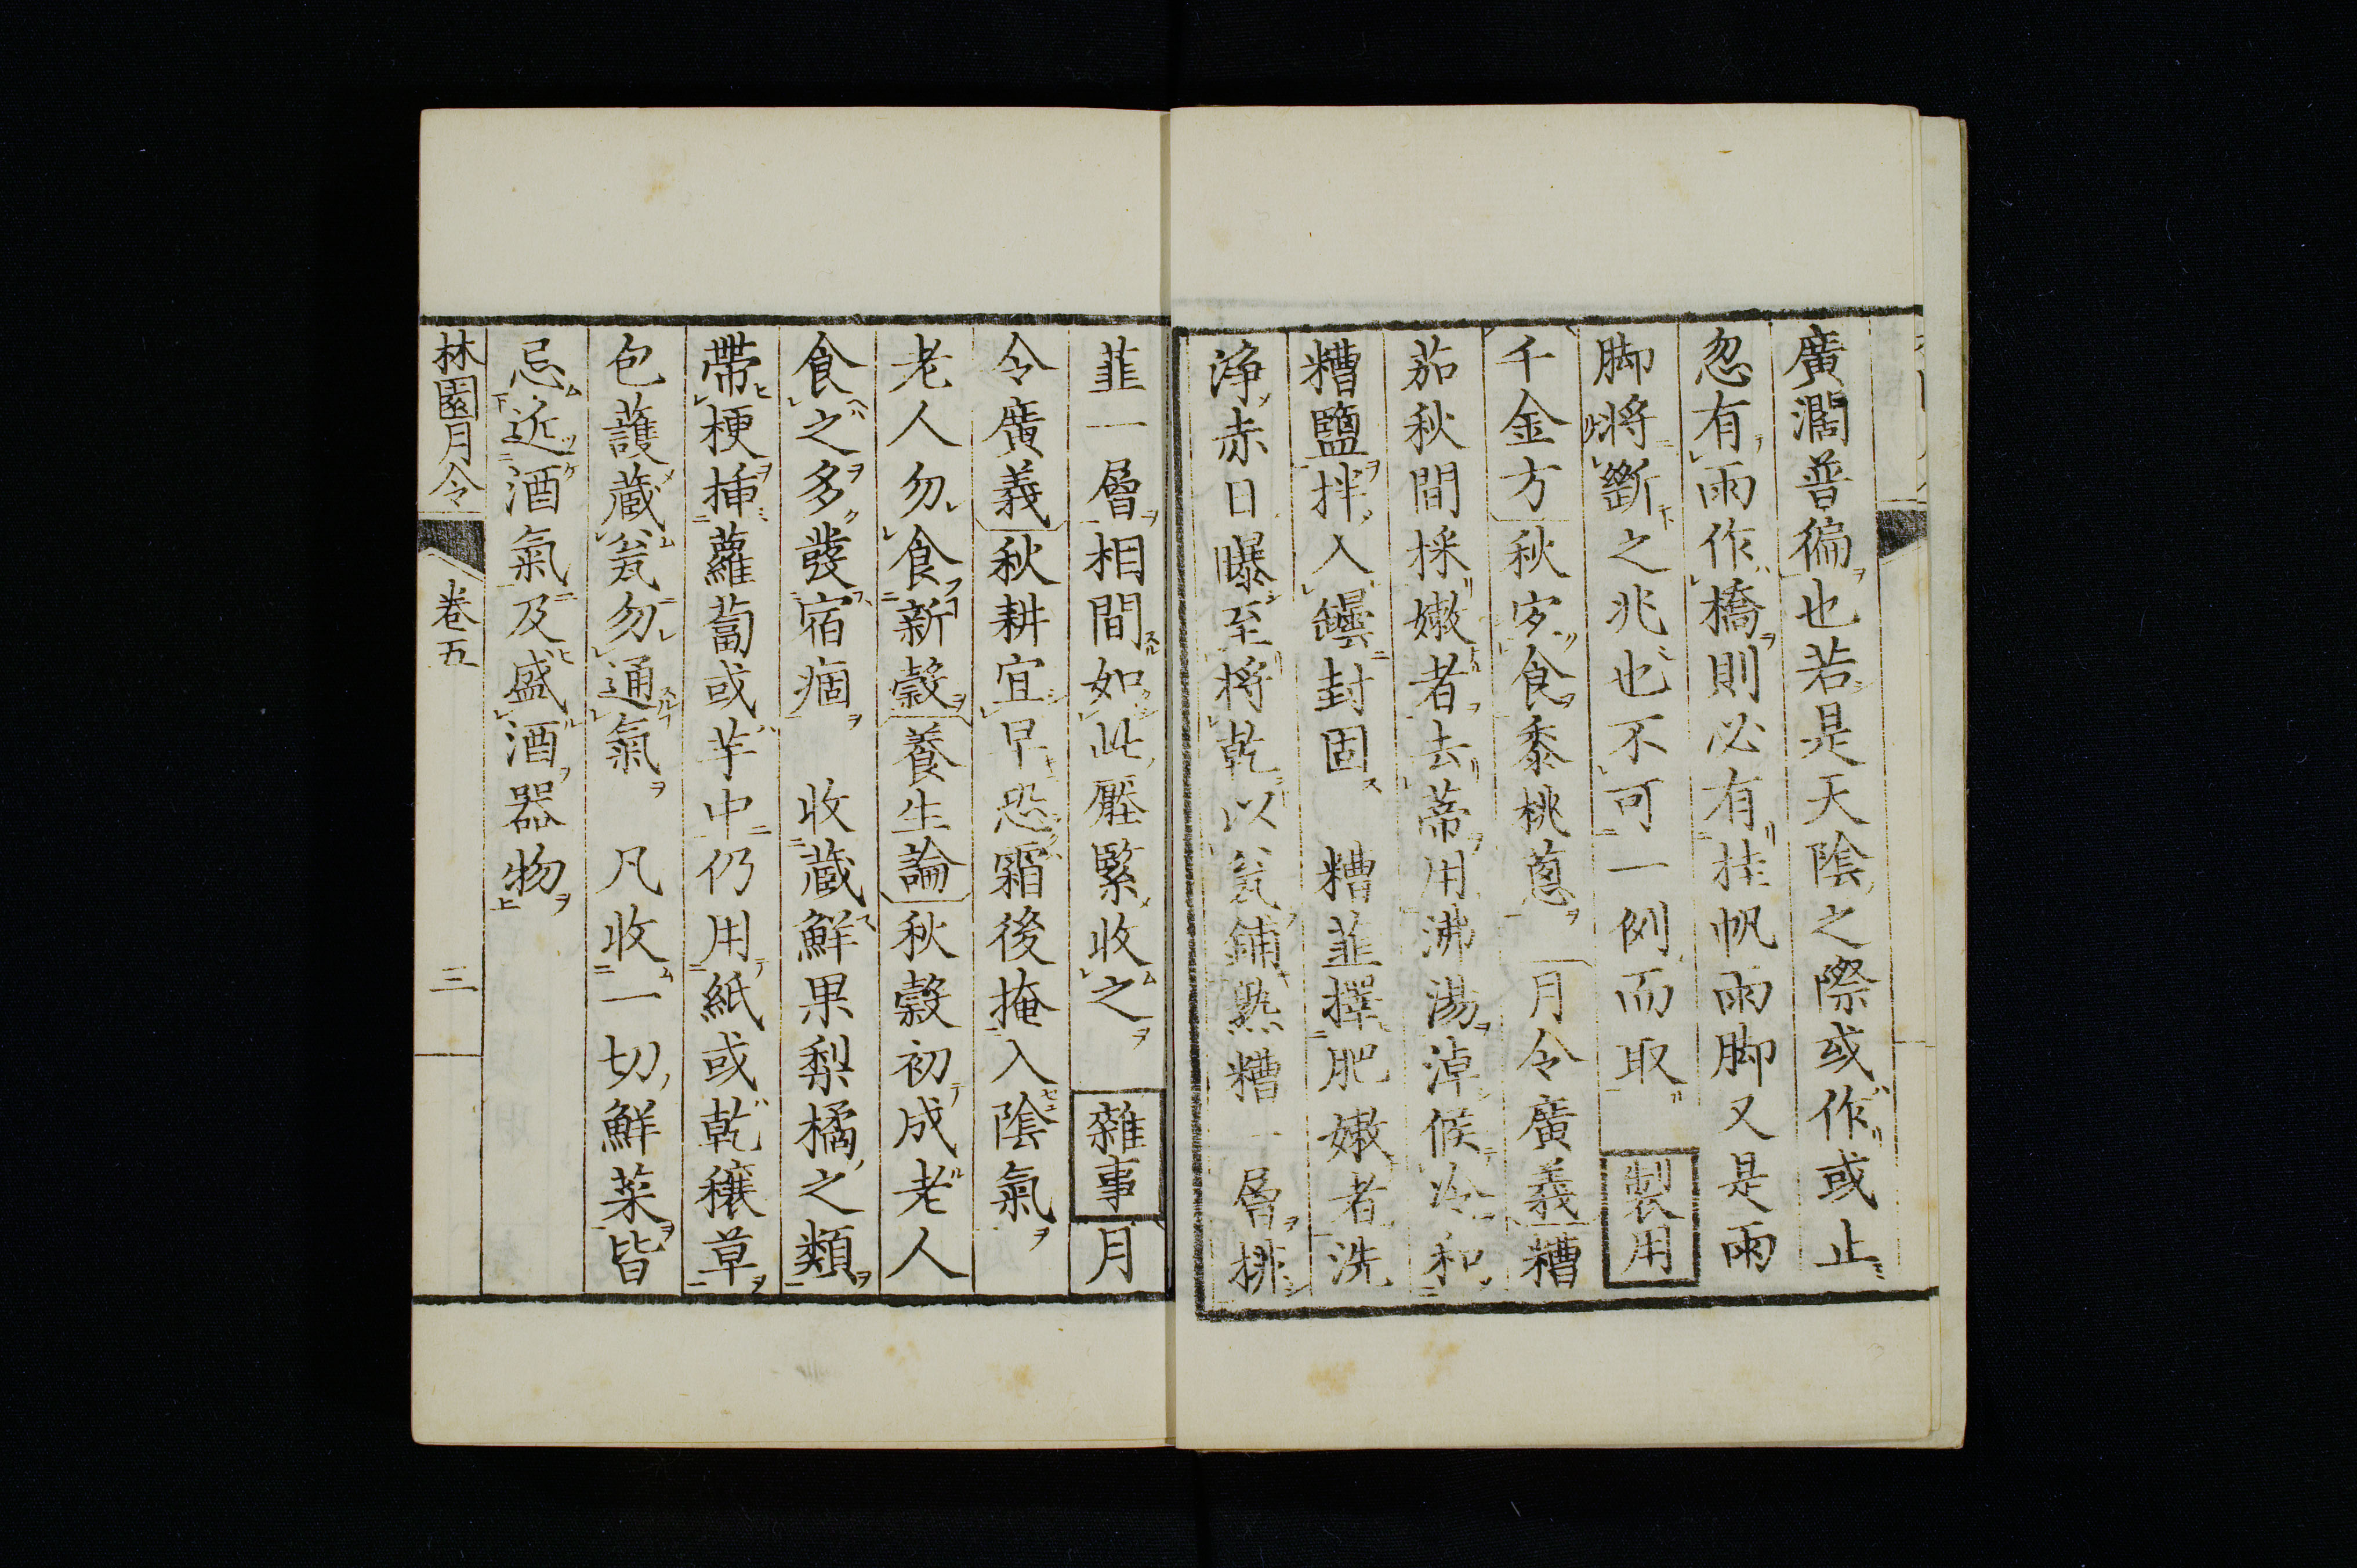 廣濶普徧也若是天陰之際或作或止
忽有雨作橋則必有挂帆雨脚又是雨
脚將斷之兆也不可一例而取 製用
千金方秋宜食黍桃蔥 月令廣義糟
茄秋間採嫩者去蒂用沸湯淖候冷和
糟鹽拌入罎封固 糟韮擇肥嫩者洗
淨赤日曝至將乾以瓮鋪熟糟一層排
韮一層相間如此壓緊收之 雜事月
令廣義秋耕宜早恐霜後掩入陰氣
老人勿食新穀養生論秋穀初成老人
食之多發宿痼 收藏鮮果梨橘之類
帶梗挿蘿蔔或芋中仍用紙或乾穰草
包護藏瓮勿通氣 凡收一切鮮菜皆
忌近酒氣及盛酒器物
林園月令 卷五 三